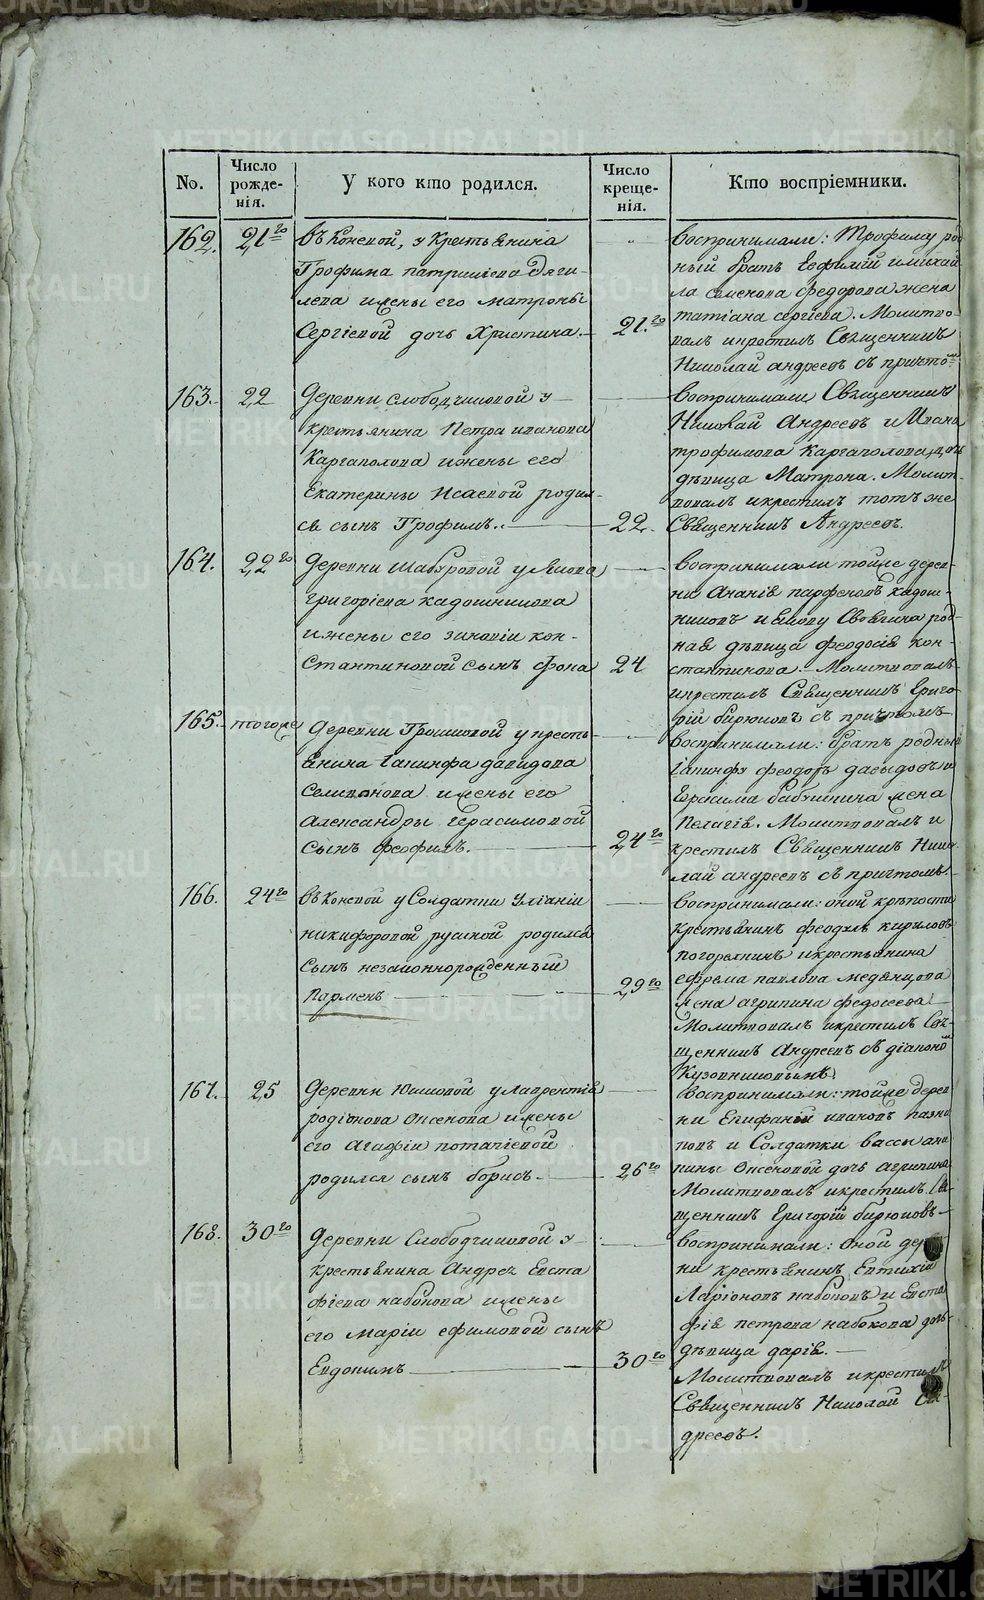 No.
Число рожде-
нія.
У кого кто родился.
Число креще-
нія.
Кто воспріемники.
162.
21го
въ Коневой, у Крестьянина
Трофима патрикѣева Дяги-
лева и жены его матроны
Сергіевой дочь Христина.
21.го
Воспринимали: Трофиму род
ный братъ Ефимій и михай
ла семенова федорова жена
татіана сергіева. Молитво-
валъ и крестилъ Священникъ
Николай андреевъ съ причтомъ
163.
22
Деревни слободчиковой у
крестьянина Петра иванова
Каргаполова и жены его
Екатерины Исаевой родил-
ся сынъ Трофимъ.
22.
Воспринимали Священникъ
Николай Андреевъ и Ивана
трофимова Каргаполова дочь
дѣвица Матрона. Молит-
вовалъ и крестилъ тотъ же
Священникъ Андреевъ.
164.
22го
Деревни Шабуровой у Якова
григоріева кадошникова
и жены его зиновіи кон-
стантиновой сынъ фока
24
Воспринимали тойже дерев-
ни Ананія парфеновъ Кадош-
никовъ и Якову Свояченица род-
ная дѣвица феодосія кон-
стантинова. Молитвовалъ
и крестилъ Священникъ Григо-
рій бирюковъ съ причтомъ
165.
тогоже
Деревни Грошковой у кресть-
янина Іакинфа давидова
Селиванова и жены его
Александры Герасимовой
сынъ феофилъ.
24го
Воспринимали: братъ родный
Іакинфу феодоръ давыдовъ и
Герасима бабушкина жена
Пелагія. Молитвовалъ и
крестилъ Священникъ Нико-
лай андреевъ съ причтомъ.
166.
24го
въ Коневой у Солдатки Уліаніи
никифоровой русиной родился
сынъ незаконнорожденный
Парменъ
29го
Воспринимали: оной крѣпости
крестьянинъ феодулъ кириловъ
погорелкинъ и крестьянина
ефрема павлова медянцова
жена агрипина федосеева
Молитвовалъ и крестилъ Свя-
щенникъ Андреевъ съ діакономъ
Кузовниковымъ.
167.
25
Деревни Юшковой у лаврентія
родіонова Оксенова и жены
его Агафіи потапіевой
родился сынъ борисъ.
26го
Воспринимали: тойже дерев
ни Епифаній ивановъ
и Солдатки вассы
Оксеновой дочь агрипина
Молитвовалъ и крестилъ Свя-
щенникъ Григорій бирюковъ
168.
30го
Деревни Слободчиковой у
крестьянина Андрея Евста
фіева набокова и жены
его маріи ефимовой сынъ
Евдокимъ
30го
Воспринимали: оной дерев
ни крестьянинъ Евтихій
Ларіоновъ набоковъ и Евста
фія петрова набокова дочь
дѣвица дарія.
Молитвовалъ и крестилъ
Священникъ Николай Ан-
дреевъ.
METRIKI.GASO-URAL.RU